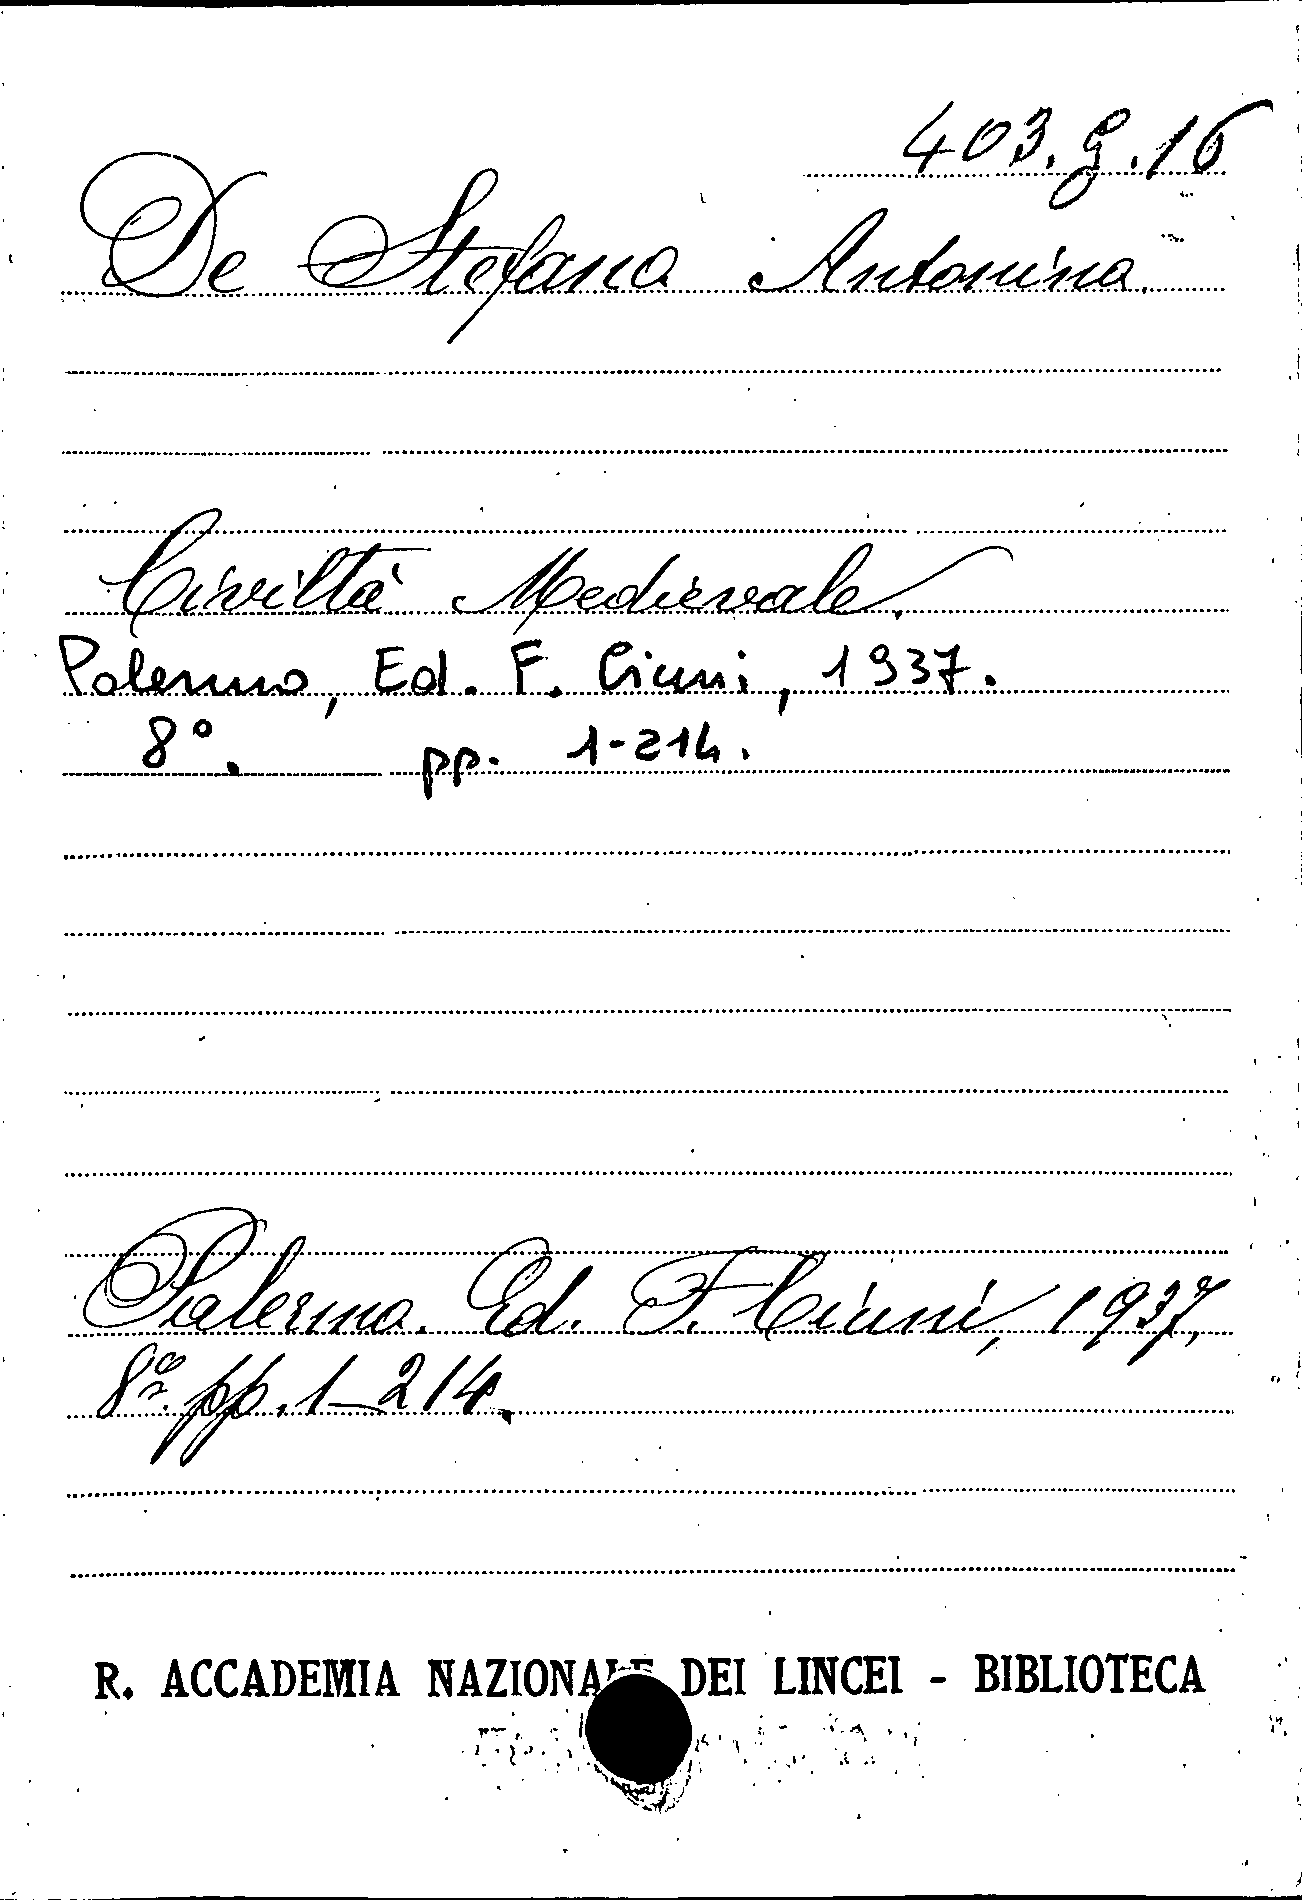 403. G. 16
De Stefano Antonino.
Civiltà Medievale.
Palermo, Ed. F. Ciuni, 1937.
8°. pp. 1-214.
Palermo. Ed. F. Ciuni, 1937.
8º. pp. 1-214.
R. ACCADEMIA NAZIONALE DEI LINCEI - BIBLIOTECA